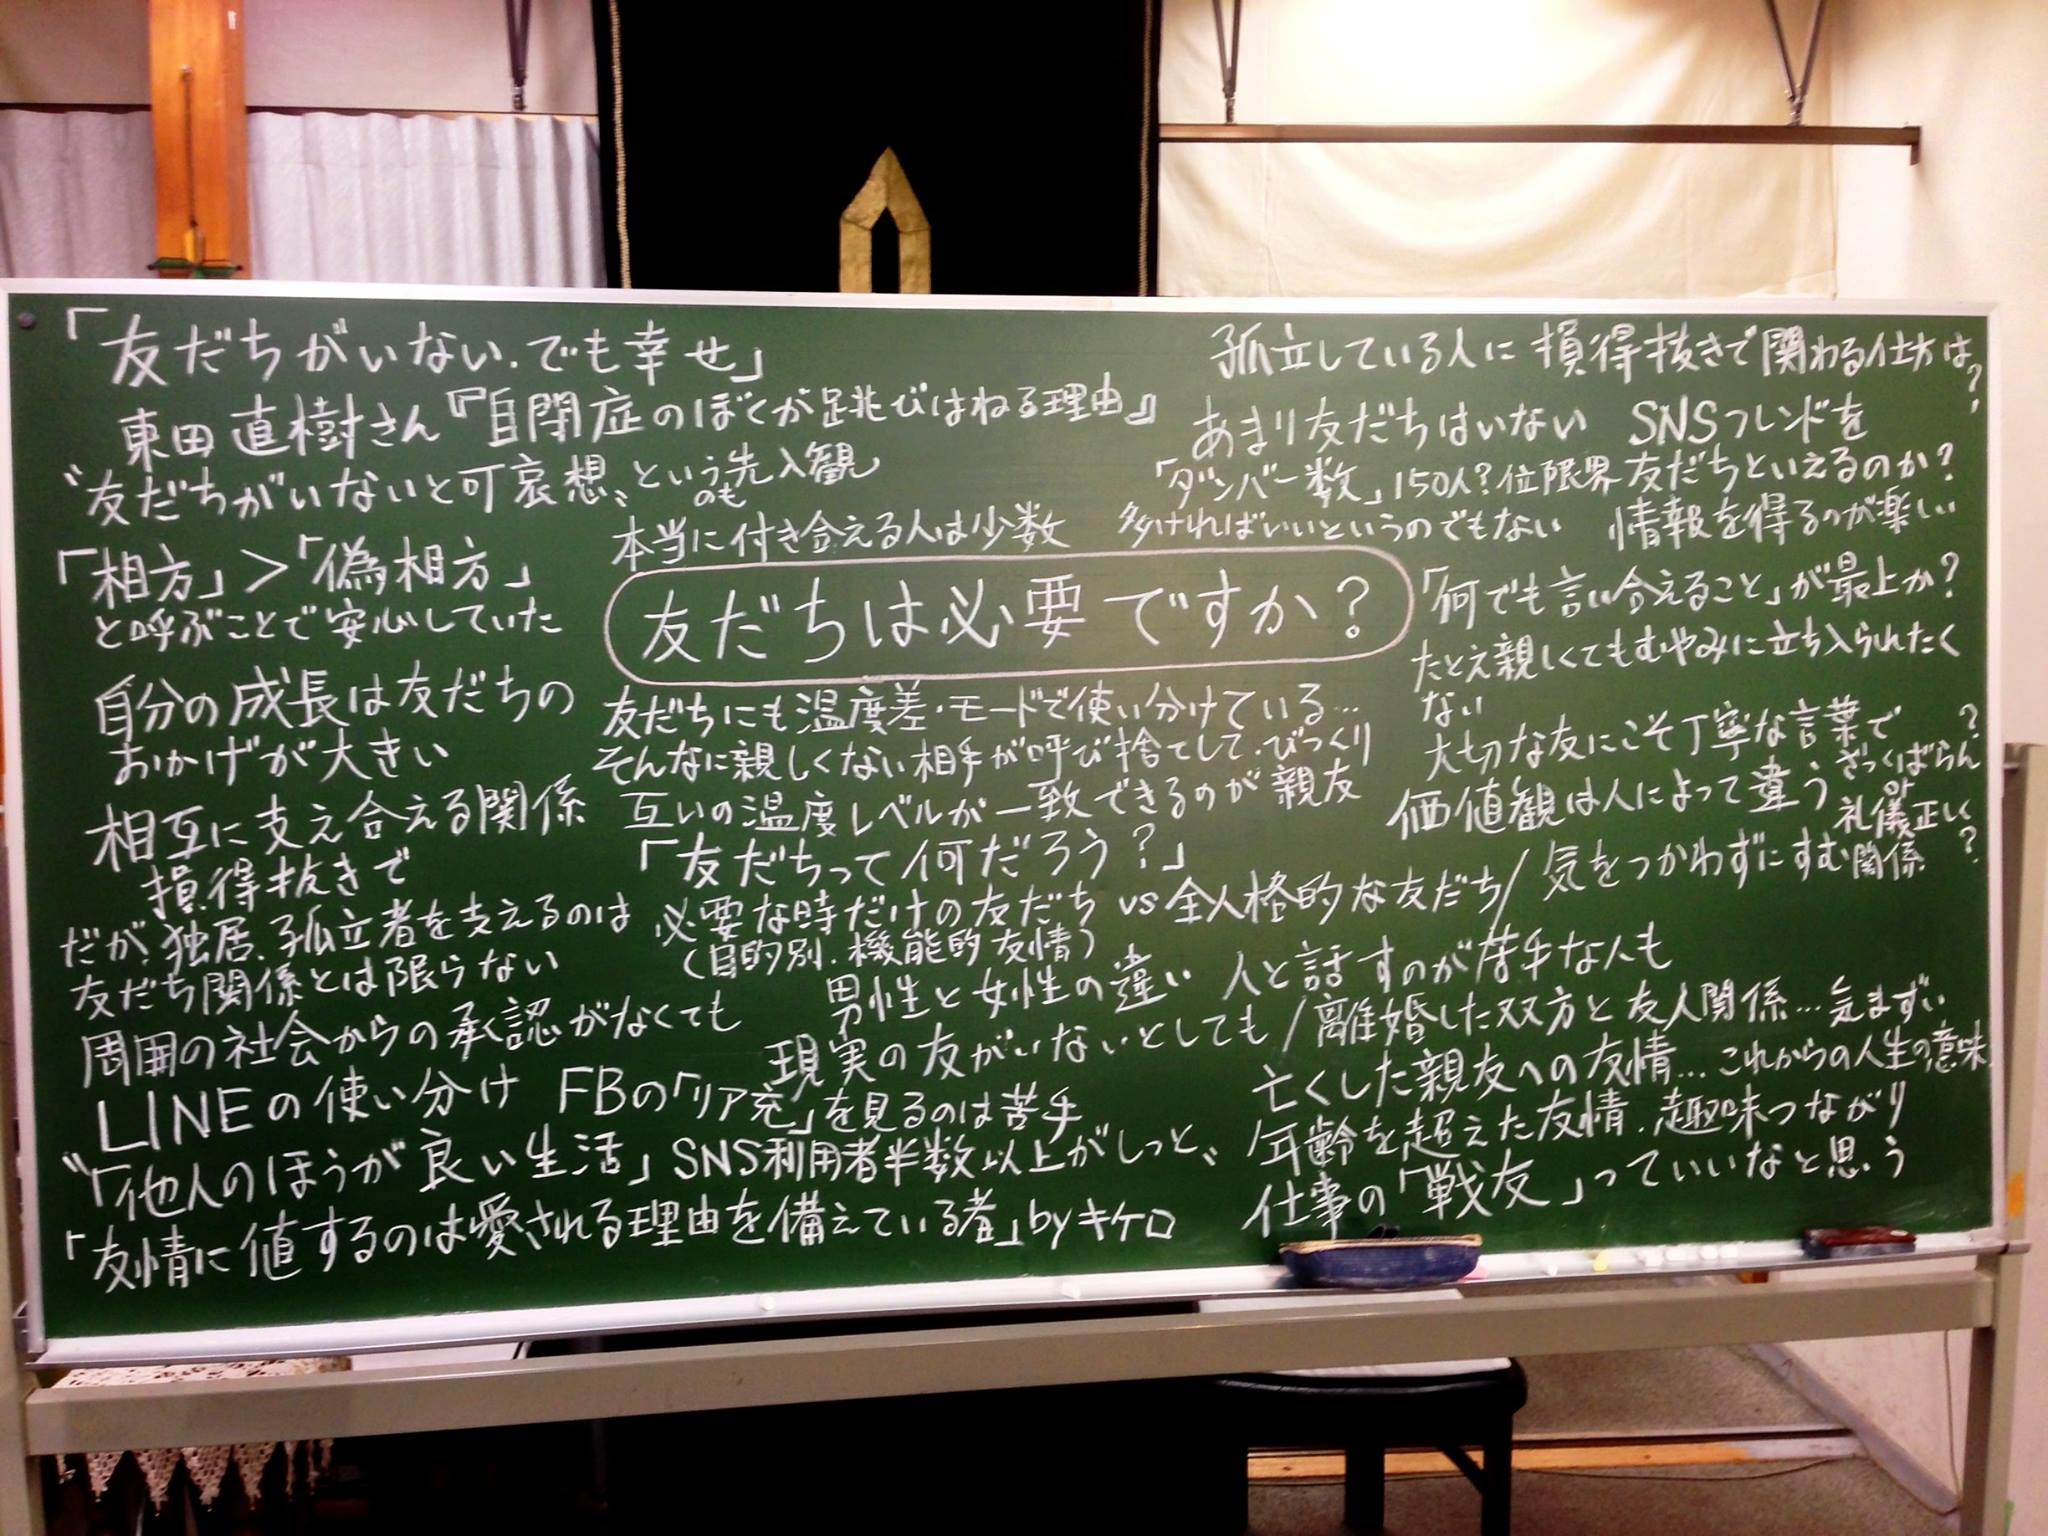 「友だちがいない.でも幸せ」
東田直樹さん『自閉症のぼくが跳びはねる理由』
〝友だちがいないと可哀想〟という先入観
のも
「相方」>「偽相方」
と呼ぶことで安心していた
自分の成長は友だちの
おかげが大きい
相互に支え合える関係
損得抜きで
だが、独居、孤立者を支えるのは
友だち関係とは限らない
周囲の社会からの承認がなくても
LINEの使い分け FBの「リア充」を見るのは苦手
〝「他人のほうが良い生活」SNS利用者半数以上がしっと〟
「友情に値するのは愛される理由を備えている者」byキケロ
本当に付き合える人は少数
友だちは必要ですか?
友だちにも温度差・モードで使い分けている…
そんなに親しくない相手が呼び捨てして、びっくり
互いの温度レベルが一致できるのが親友
「友だちって何だろう?」
必要な時だけの友だち vs 全人格的な友だち/気をつかわずにすむ関係
(目的別、機能的友情)
男性と女性の違い 人と話すのが苦手な人も
現実の友がいないとしても/離婚した双方と友人関係…気まずい
孤立している人に損得抜きで関わる仕方は?
あまり友だちはいない
「ダンバー数」150人?位限界
多ければいいというのでもない
SNSフレンドを
友だちといえるのか?
情報を得るのが楽しい
「何でも言い合えること」が最上か?
たとえ親しくてもむやみに立ち入られたく
ない
大切な友にこそ丁寧な言葉で
価値観は人によって違う
ざっくばらん?
or
礼儀正しく?
亡くした親友への友情…これからの人生の意味
年齢を超えた友情、趣味つながり
仕事の「戦友」っていいなと思う